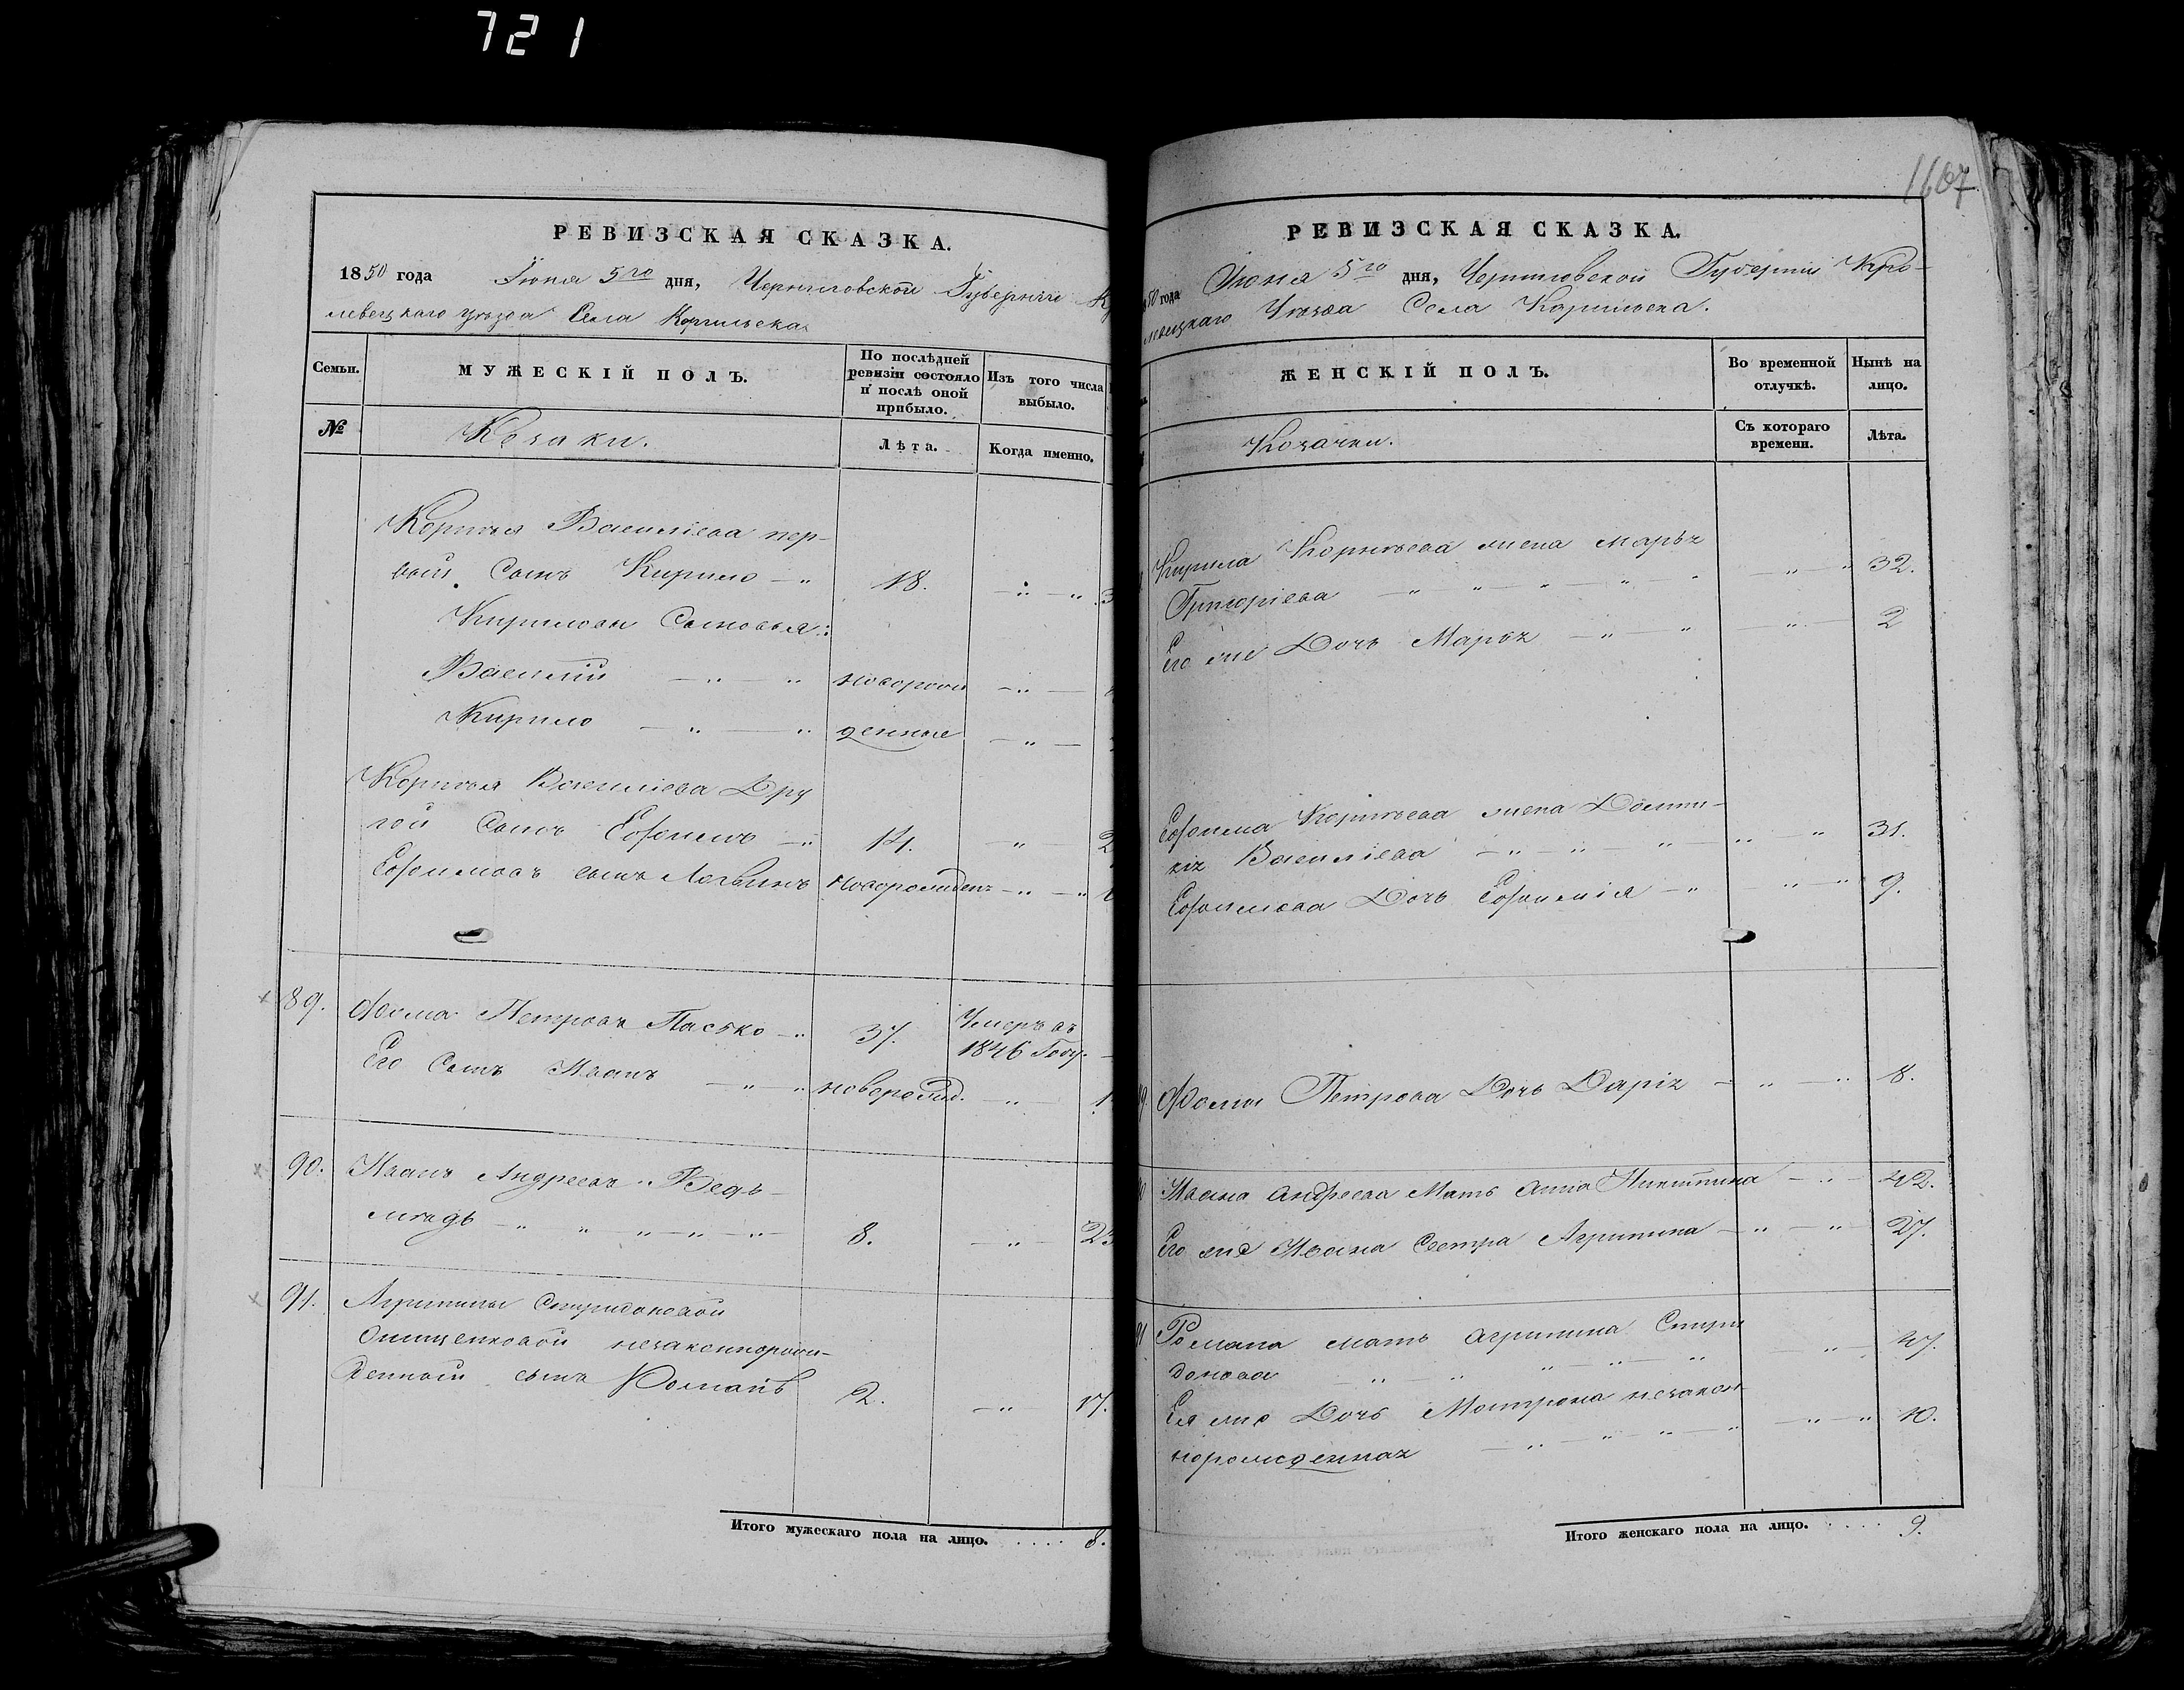 721
1607
РЕВИЗСКАЯ СКАЗКА.
1850 года Іюня 5го дня, Черниговской Губерніи К
левецкаго уезда Села Коропьска
Семьи.
МУЖЕСКІЙ ПОЛЪ.
По послѣдней ревизіи состояло и послѣ оной прибыло.
Изъ того числа выбыло.
№
Козаки.
Лѣта.
Когда именно.
Корнѣя Василіева пер-
вый Сынъ Кирило 18.
Кириловы Сыновья:
Василій новорож
Кирило денные
Корнѣя Василіева Дру
гой Сынъ Ефимъ 14. 2
Ефимовъ сынъ Логвинъ новорожденъ
89. Фома Петровъ Пасько 37. Умеръ въ
1846 Году.
Его Сынъ Иванъ новорожд. 1
90. Иванъ Андреевъ Ведь-
мѣдь 8. 23
91. Агрипины Спиридоновой
Онищенковой незаконнорож-
денный сынъ Романъ 2. 17.
Итого мужескаго пола на лицо. .... 8.
РЕВИЗСКАЯ СКАЗКА.
50 года Іюня 5го дня, Черниговской Губерніи Кро-
левецкаго Уезда Села
ЖЕНСКІЙ ПОЛЪ.
Во временной отлучкѣ.
Нынѣ на лицо.
Козачки.
Съ котораго времени.
Лѣта.
Кирила Корнѣева жена Марья
Григоріева 32.
Его же Дочь Марья 2
Ефима Корнѣева жена Домни-
кія Василіева 31.
Ефимова Дочь Ефимія 9.
Фомы Петрова Дочь Дарія 8.
Ивана Андреева Мать Анна Никитина 42.
Его же Ивана Сестра Агрипина 27.
91 Романа мать Агрипина Спири
донова 47.
Ея же Дочь Мотрона незакон
норожденная 10.
Итого женскаго пола на лицо. .... 9.